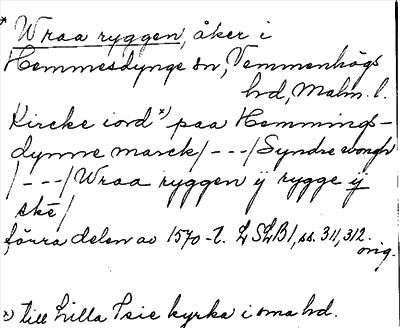 * Wraa ryggen, åker i
Hemmesdynge sn, Vemmenhögs
hd, Malm. l.
Kircke iord x) paa Hemmings-
dynne marck/---/Syndre wongh
/---/Wraa ryggen ij rygge ij
skė/
förra delen av 1570-t. LSLB1, ss. 311, 312.
orig.
x) till Lilla Isie kyrka i sma hd.